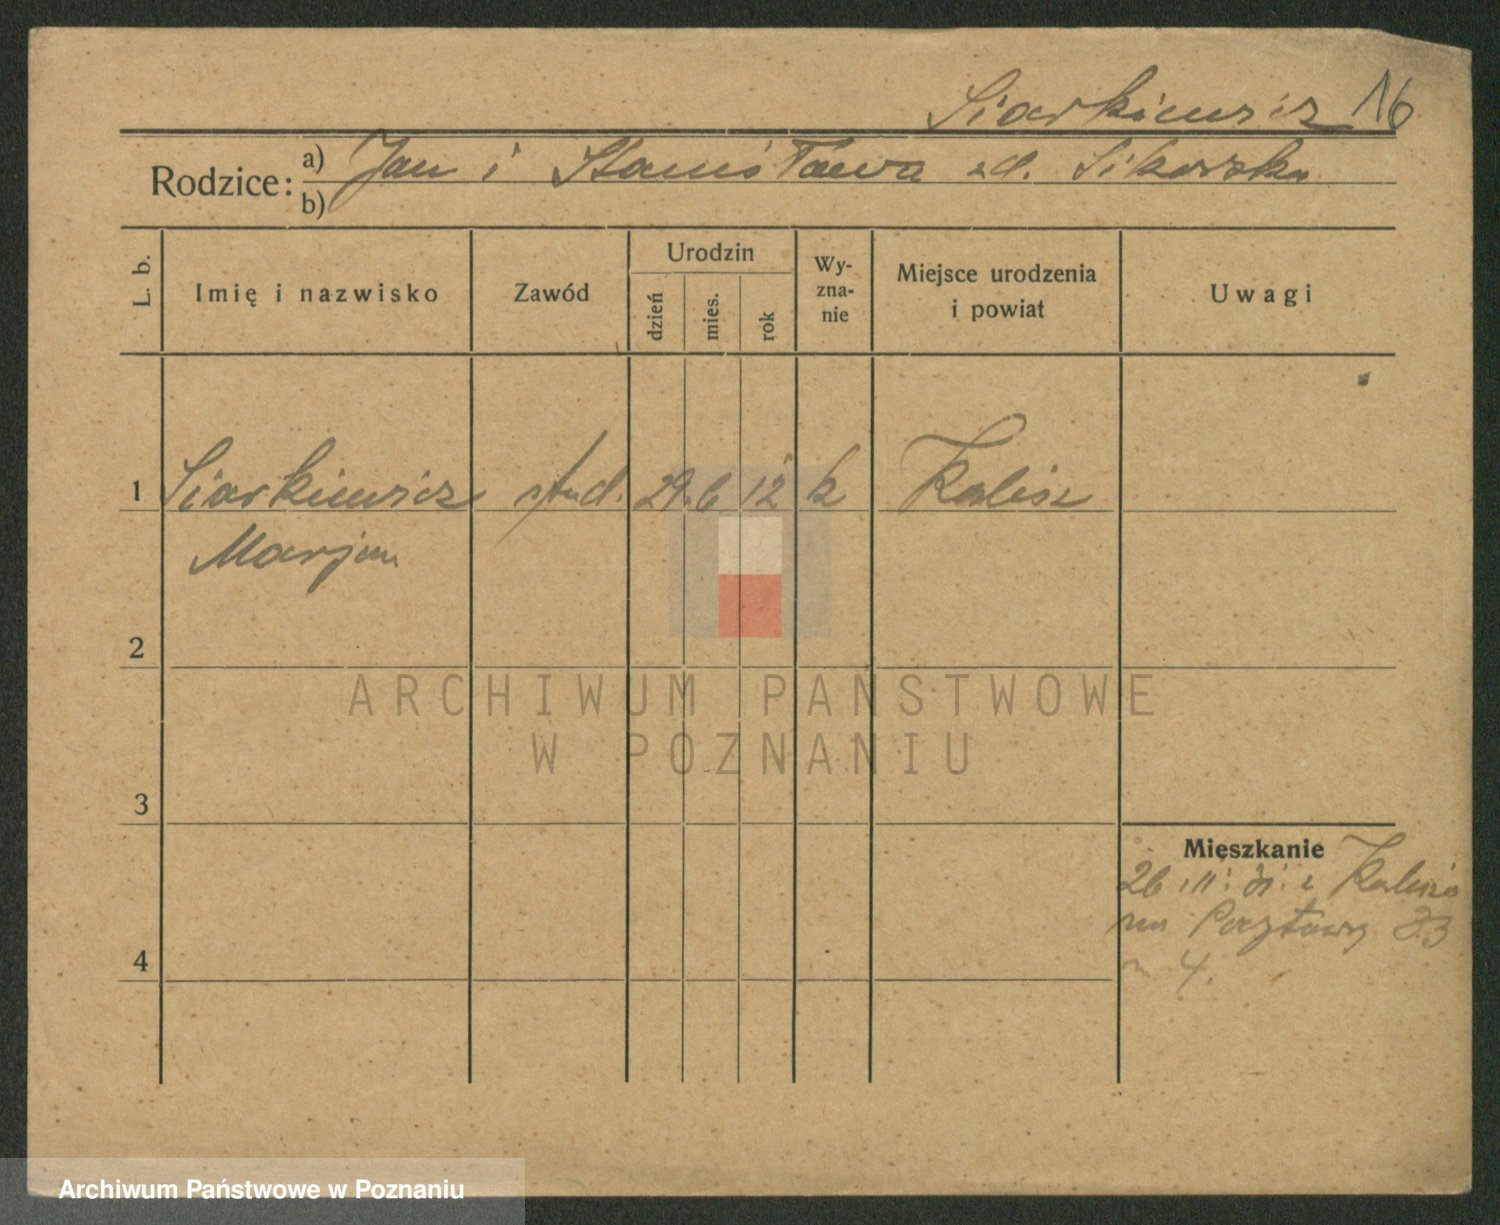 Siarkiewicz 16
Rodzice: a) Jan i Stanisława zd. Sikorska
b)
L. b. Imię i nazwisko Zawód Urodzin dzień mies. rok Wy-zna-nie Miejsce urodzenia i powiat Uwagi
1 Siarkiewicz stud. 29. 6 12 k Kalisz
Marjan
2
ARCHIWUM PAŃSTWOWE
W POZNANIU
3
Mieszkanie
26 III 31. z Kalisza
Pocztowy 23
m 4.
4
Archiwum Państwowe w Poznaniu